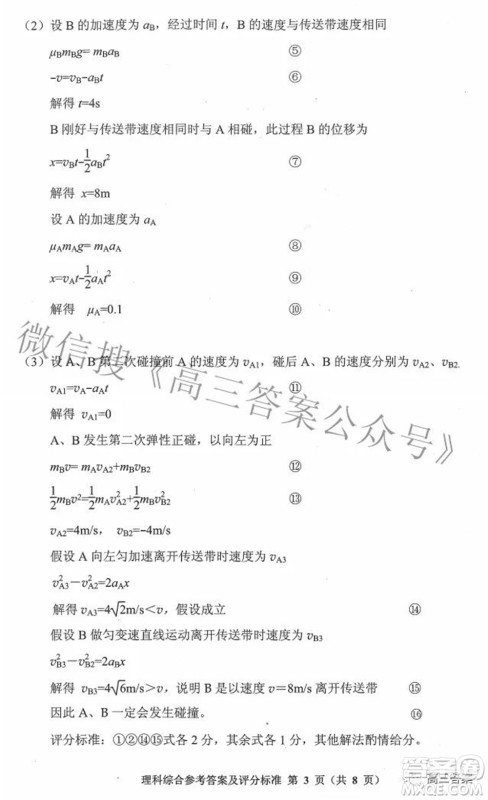 （2）设 B 的加速度为 aB，经过时间 t，B 的速度与传送带速度相同
μBmBg= mBaB ⑤
-v=vB-aBt ⑥
解得 t=4s
B 刚好与传送带速度相同时与 A 相碰，此过程 B 的位移为
x=vBt-1/2aBt² ⑦
解得 x=8m
设 A 的加速度为 aA
μAmAg= mAaA ⑧
x=vAt-1/2aAt² ⑨
解得 μA=0.1 ⑩
（3）设 A、B 第二次碰撞前 A 的速度为 vA1，碰后 A、B 的速度分别为 vA2、vB2.
vA1=vA-aAt ⑪
解得 vA1=0
A、B 发生第二次弹性正碰，以向左为正
mBv= mAvA2+mBvB2 ⑫
1/2mBv²=1/2mAv²A2+1/2mBv²B2 ⑬
vA2=4m/s，vB2=-4m/s
假设 A 向左匀加速离开传送带时速度为 vA3
v²A3－v²A2=2aAx
解得 vA3=4√2m/s＜v，假设成立 ⑭
假设 B 做匀变速直线运动离开传送带时速度为 vB3
v²B3－v²B2=2aBx
解得 vB3=4√6m/s＞v，说明 B 是以速度 v＝8m/s 离开传送带 ⑮
因此 A、B 一定会发生碰撞。 ⑯
评分标准：①②⑭⑮⑯式各 2 分，其余式各 1 分，其他解法酌情给分。
理科综合参考答案及评分标准 第 3 页（共 8 页）
微信搜《高三答案公众号》
高三答案